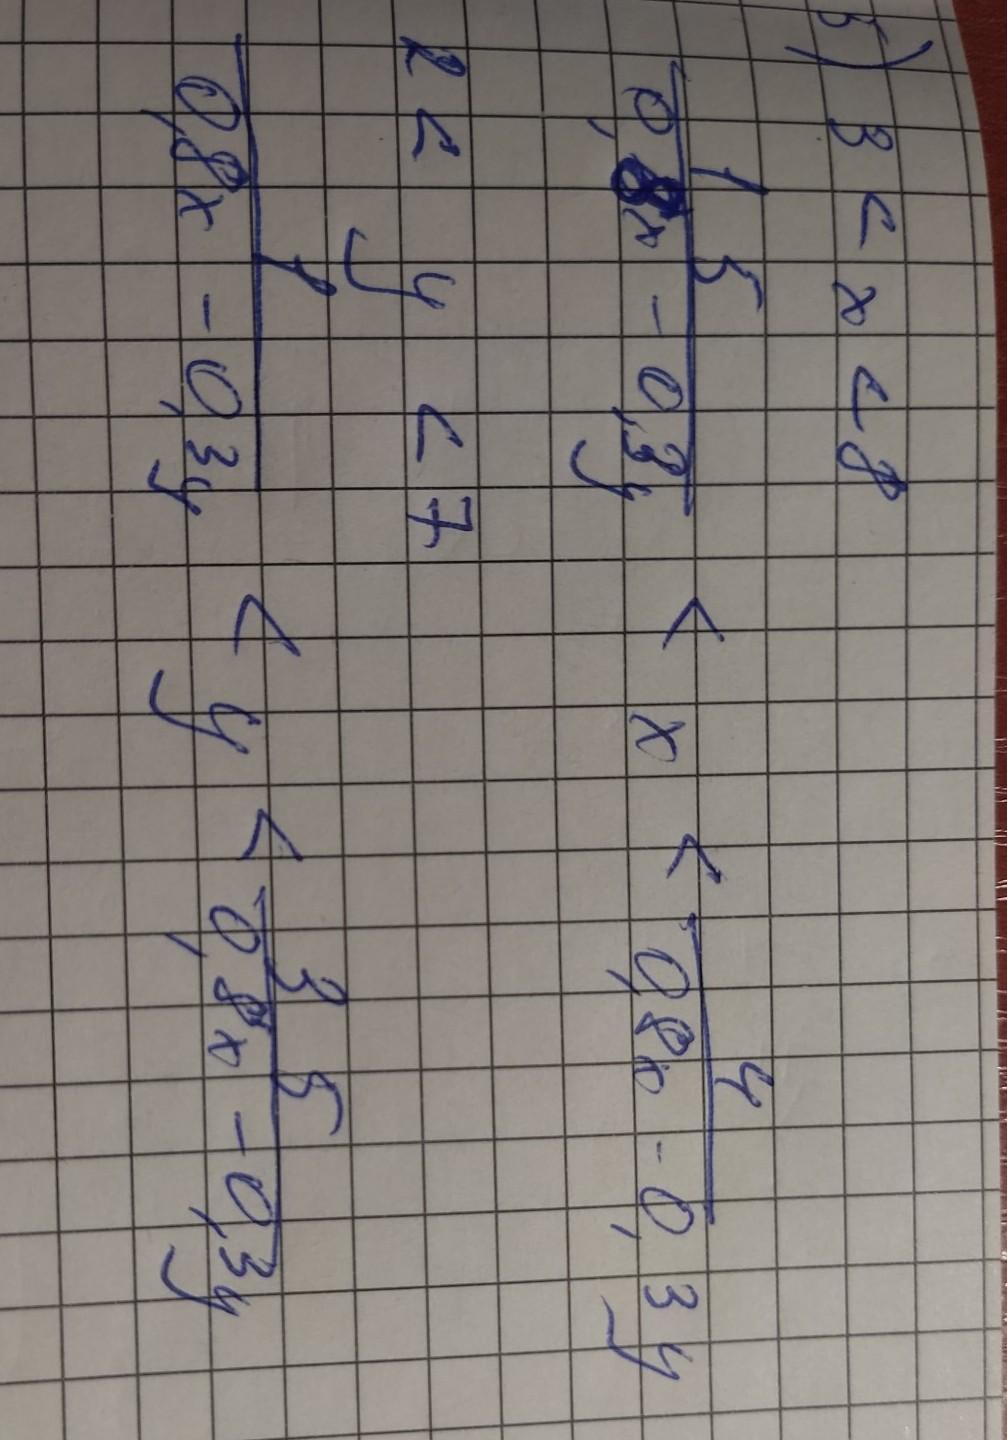 5) 3 < x < 8
15/(0,8x - 0,3y) < x < 4/(0,8x - 0,3y)
2 < y < 7
1/(0,8x - 0,3y) < y < 35/(0,8x - 0,3y)